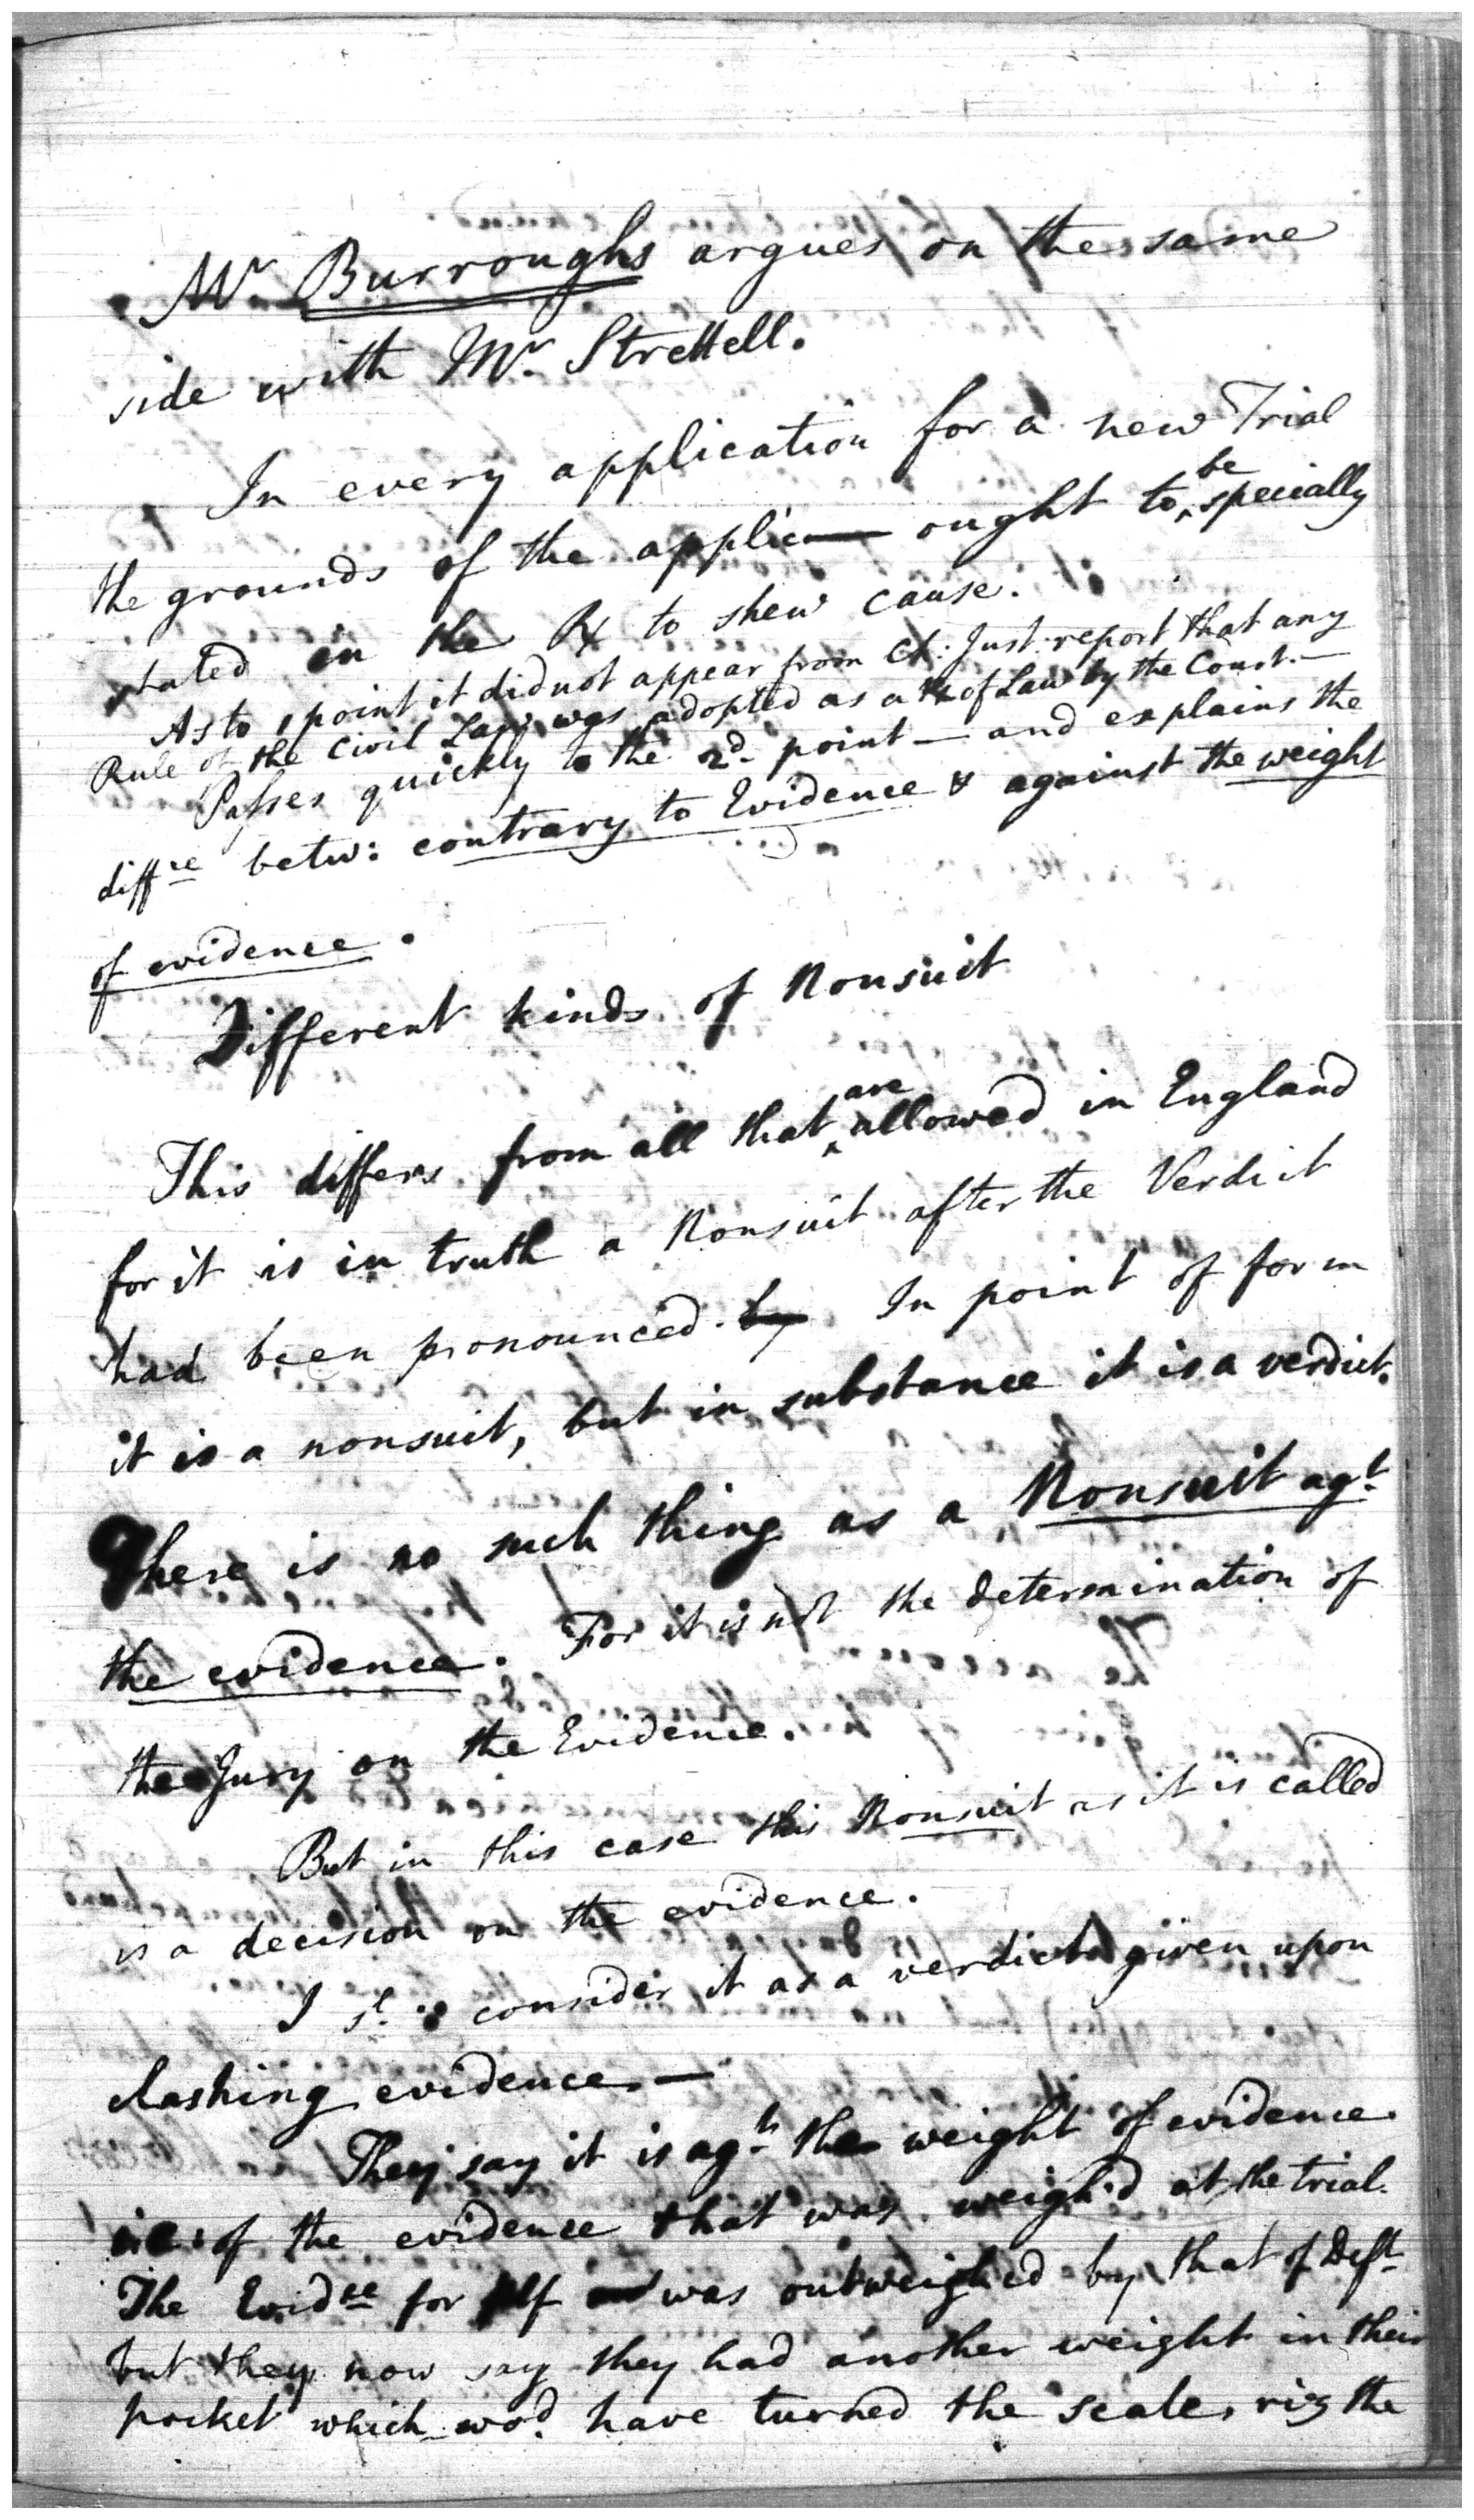 Mr Burroughs argues on the same
side with Mr Strettell.
In every application for a new Trial
the grounds of the applic— ought to be specially
stated in the Rx to shew cause.
As to 1 point it did not appear from Ch: Just: report that any
Rule of the Civil Law was adopted as a Rx of Law by the Court.—
Passes quickly to the 2d. point — and explains the
diffce betw: contrary to Evidence & against the weight
of evidence.
Different kinds of Nonsuit
This differs from all that are allowed in England
for it is in truth a Nonsuit after the Verdict
had been pronounced. by In point of form
it is a nonsuit, but in substance it is a verdict.
There is no such thing as a Nonsuit agt.
the evidence. For it is not the determination of
the Jury on the Evidence.
But in this case this Nonsuit as it is called
is a decision on the evidence.
I sd. consider it as a verdict given upon
clashing evidence.—
They say it is agt. the weight of evidence
ie: of the evidence that was weigh'd at the trial.
The Evidce for plf was outweighed by that of Deft.
but they now say they had another weight in their
pocket which wod. have turned the scale, viz the